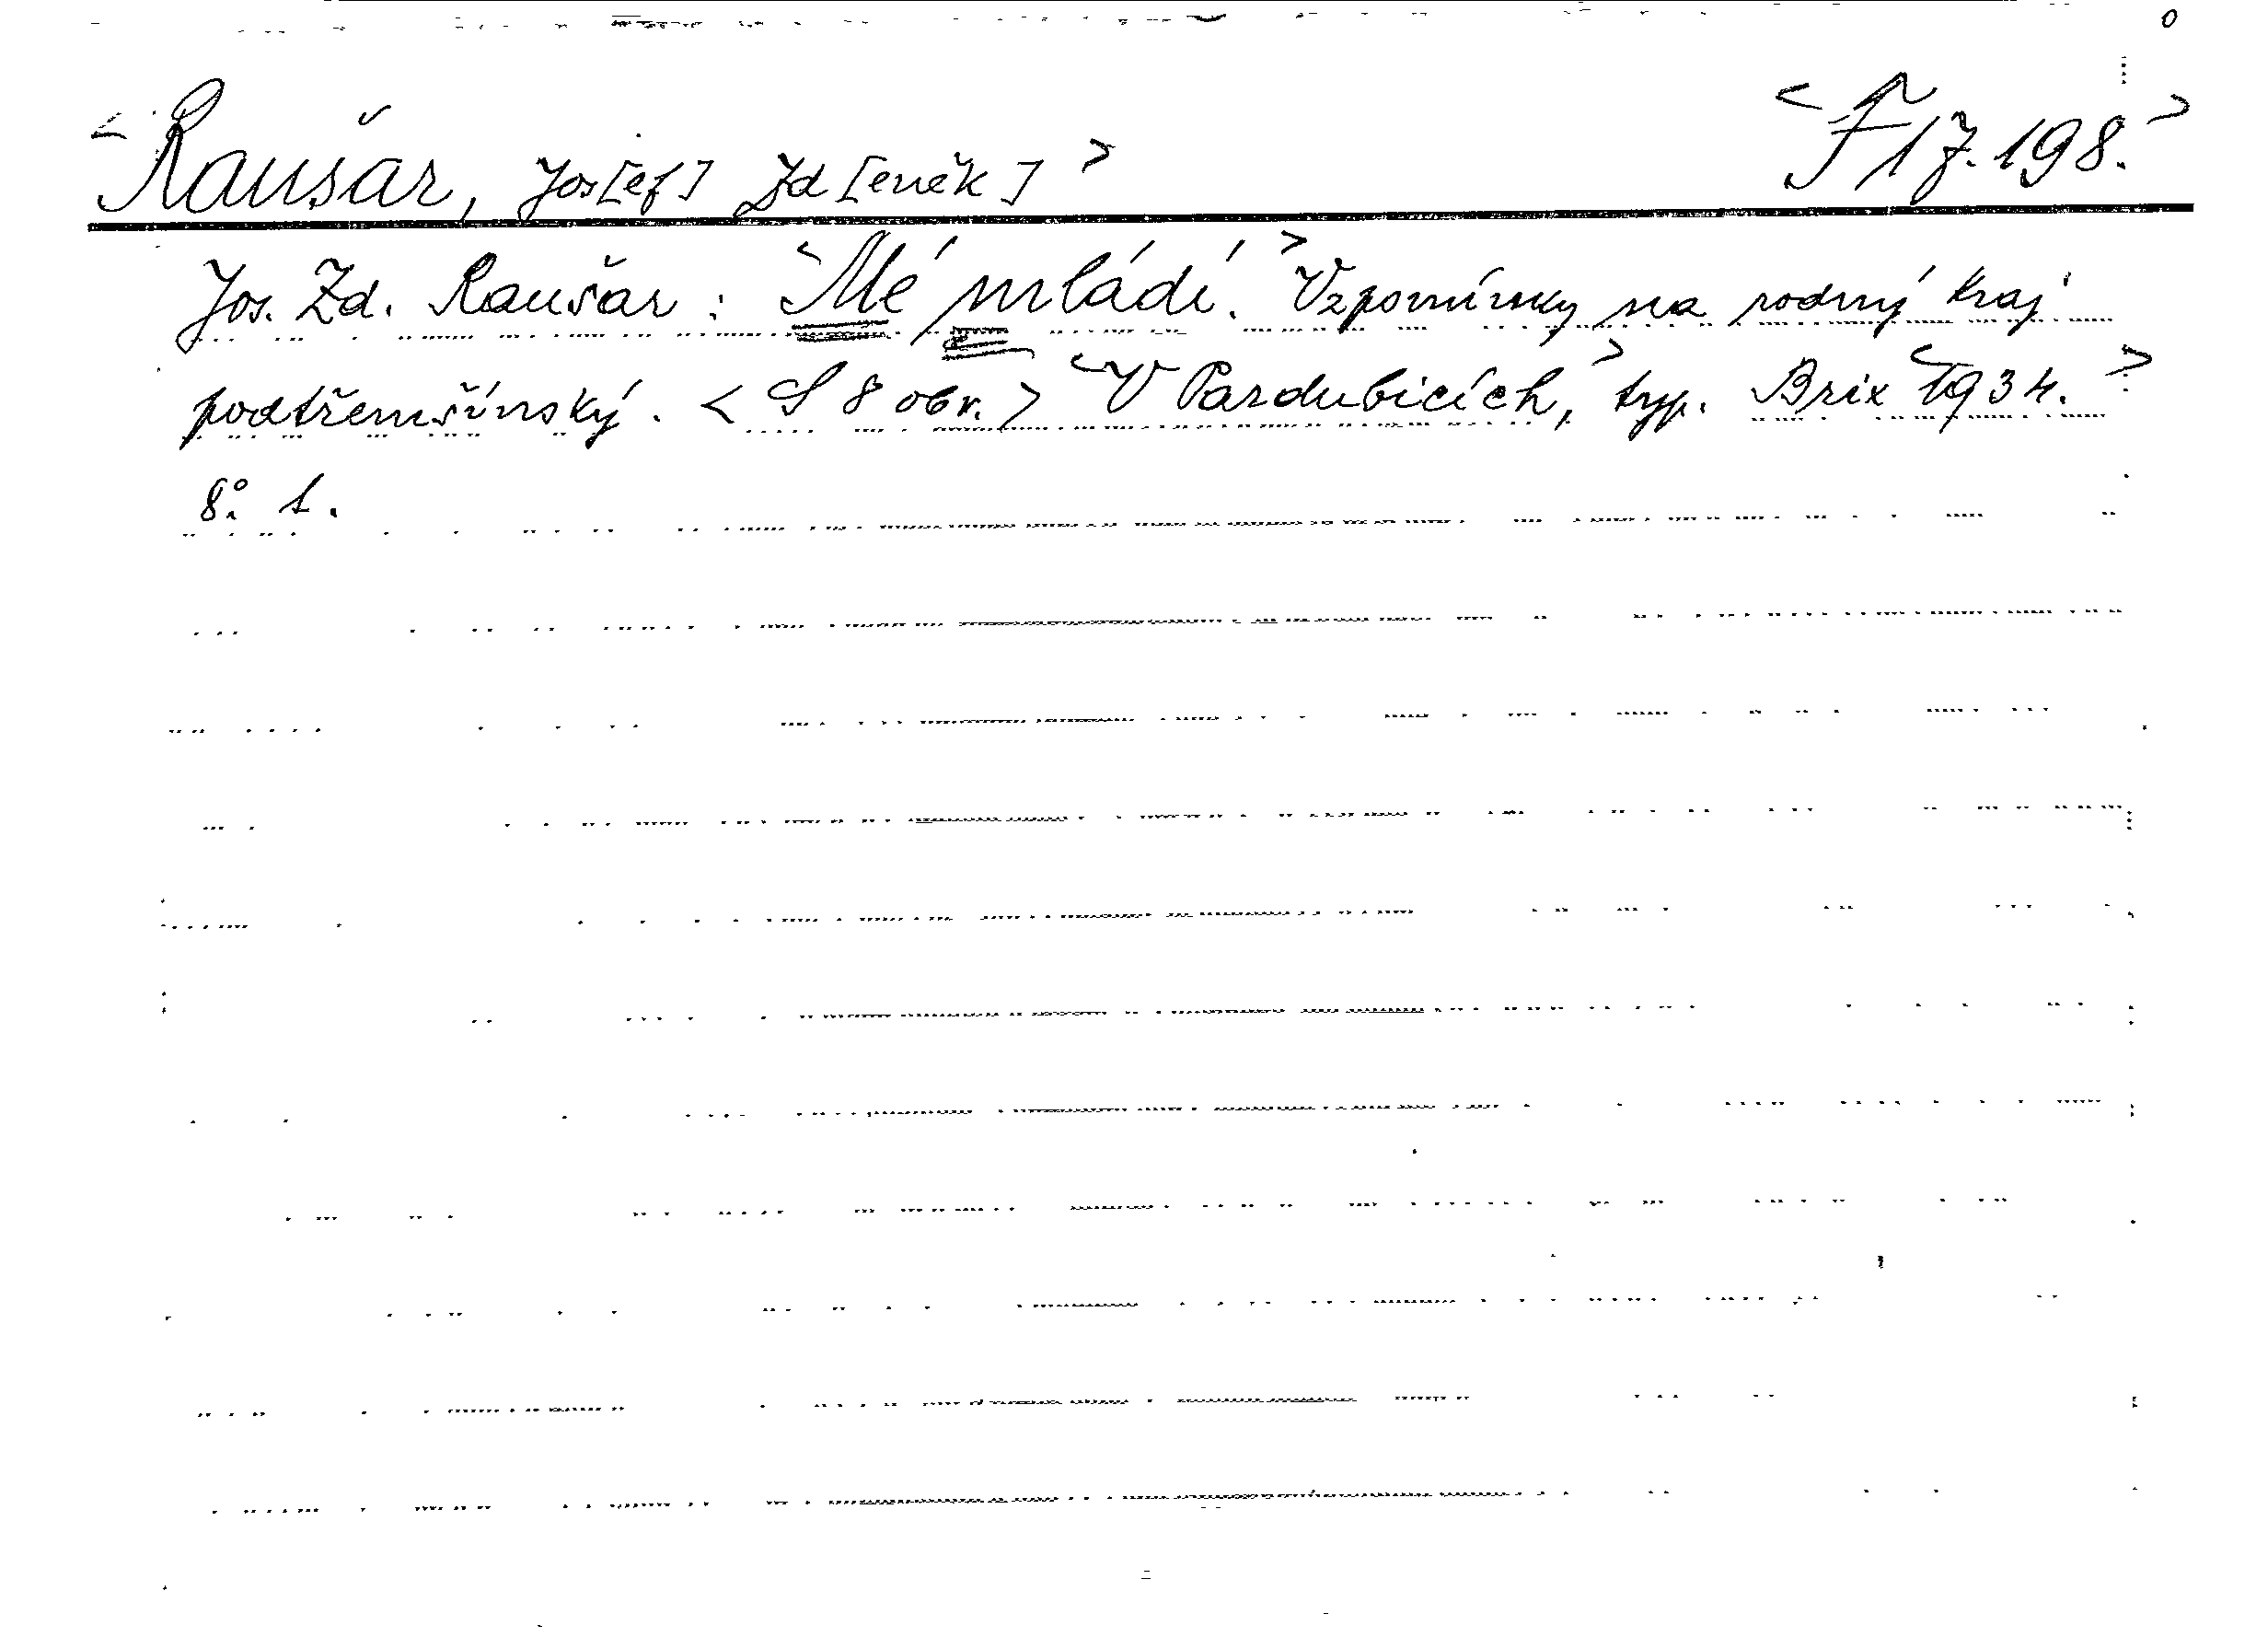 <Raušar, Jos[ef] Zd[eněk]> <F 17.198.>
Jos. Zd. Raušar: <Mé mládí.> Vzpomínky na rodný kraj
podtřemšínský. <S 8 obr.> <V Pardubicích,> typ. Brix <1934.>
8°. 1.